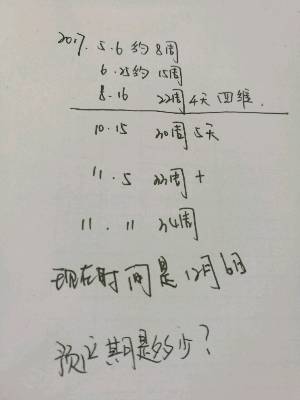 2017.5.6 约8周
6.25约 15周
8.16 22周4天 四维.
10.15 30周5天
11.5 33周+
11.11 34周
现在时间是12月6日
预产期是多少?